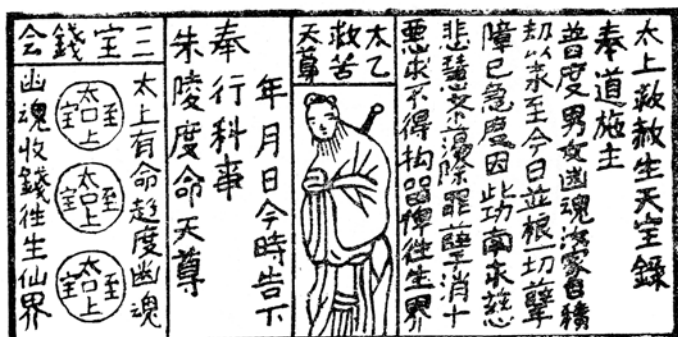 太上救赦生天宝錄
奉道施主
普度男女幽魂家自積
劫以來至今日並根一切孽
障已急度因此功南求慈
悲慧蕩除罪孽消十
惡求不得拘留俾徃生界
太乙
救苦
天尊
年月日今時告下
奉行科事
朱陵度命天尊
三宝錢会
太上有命超度幽魂
太口上至宝
太口上至宝
太口上至宝
幽魂收錢徃生仙界